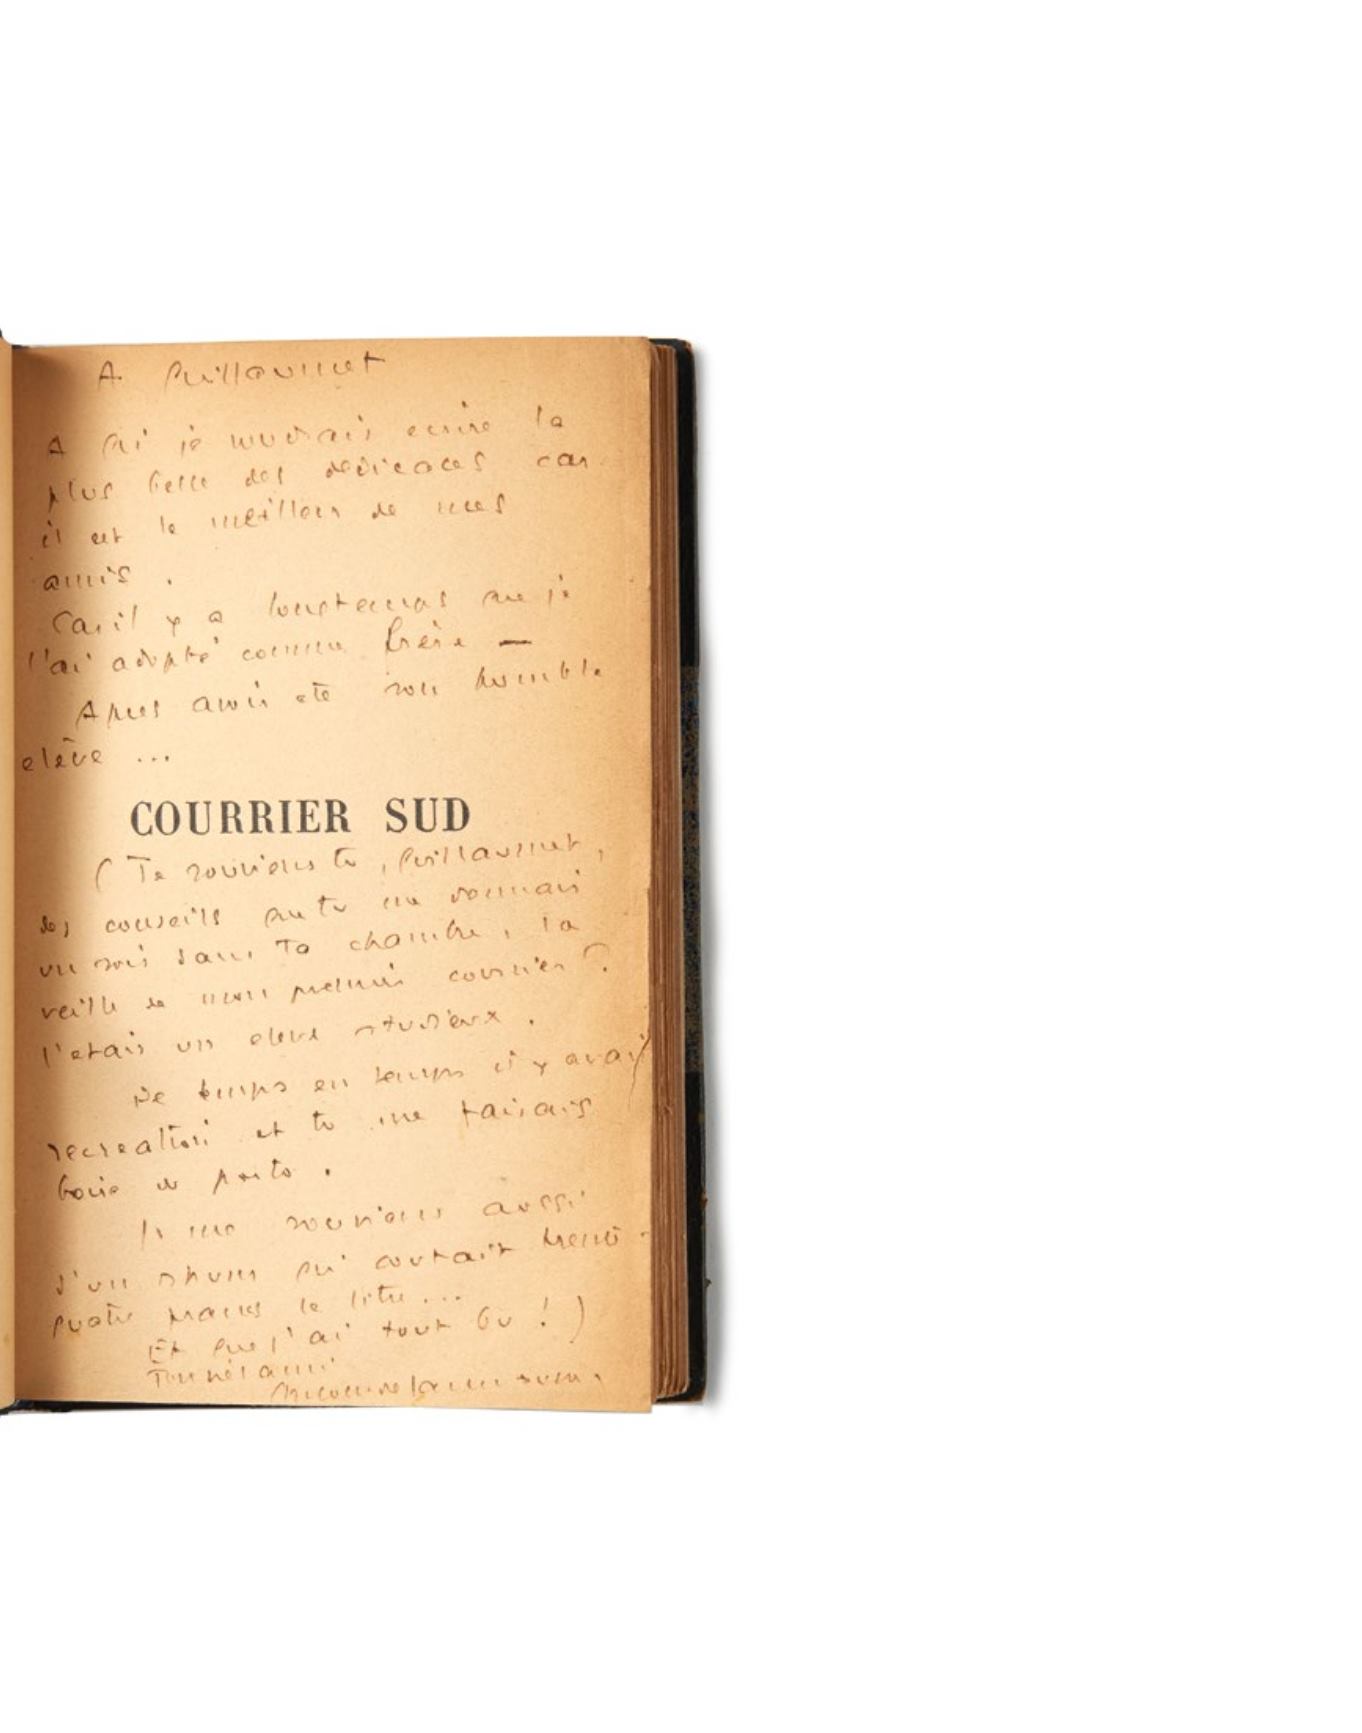 A Guillaumet
A qui je voudrais ecrire la
plus belle des dedicaces car
il est le meilleur de mes
amis.
Car il y a longtemps que je
l'ai adopté comme frère —
Apres avoir ete son humble
elève ...
COURRIER SUD
(Te souviens tu, Guillaumet,
des conseils que tu me donnais
un soir dans ta chambre, la
veille de mon premier courrier ?
J'etais un eleve studieux.
De temps en temps il y avait
recreation et tu me faisais
boire du porto.
Je me souviens aussi
d'un rhum qui coutait trente-
quatre francs le litre...
Et que j'ai tout bu !)
Ton vieil ami